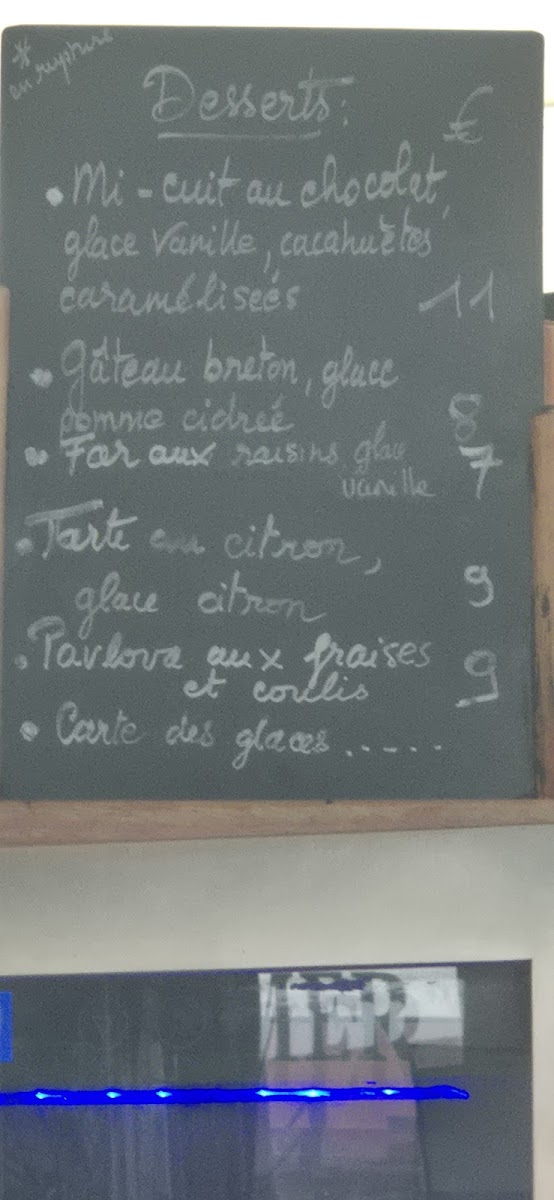 *
en rupture
Desserts:
€
• Mi-cuit au chocolat,
glace Vanille, cacahuètes
caramélisées 11
• Gâteau breton, glace
pomme cidrée 8
• Far aux raisins, glace 7
vanille
• Tarte au citron,
glace citron 9
• Pavlova aux fraises
et coulis 9
• Carte des glaces.....